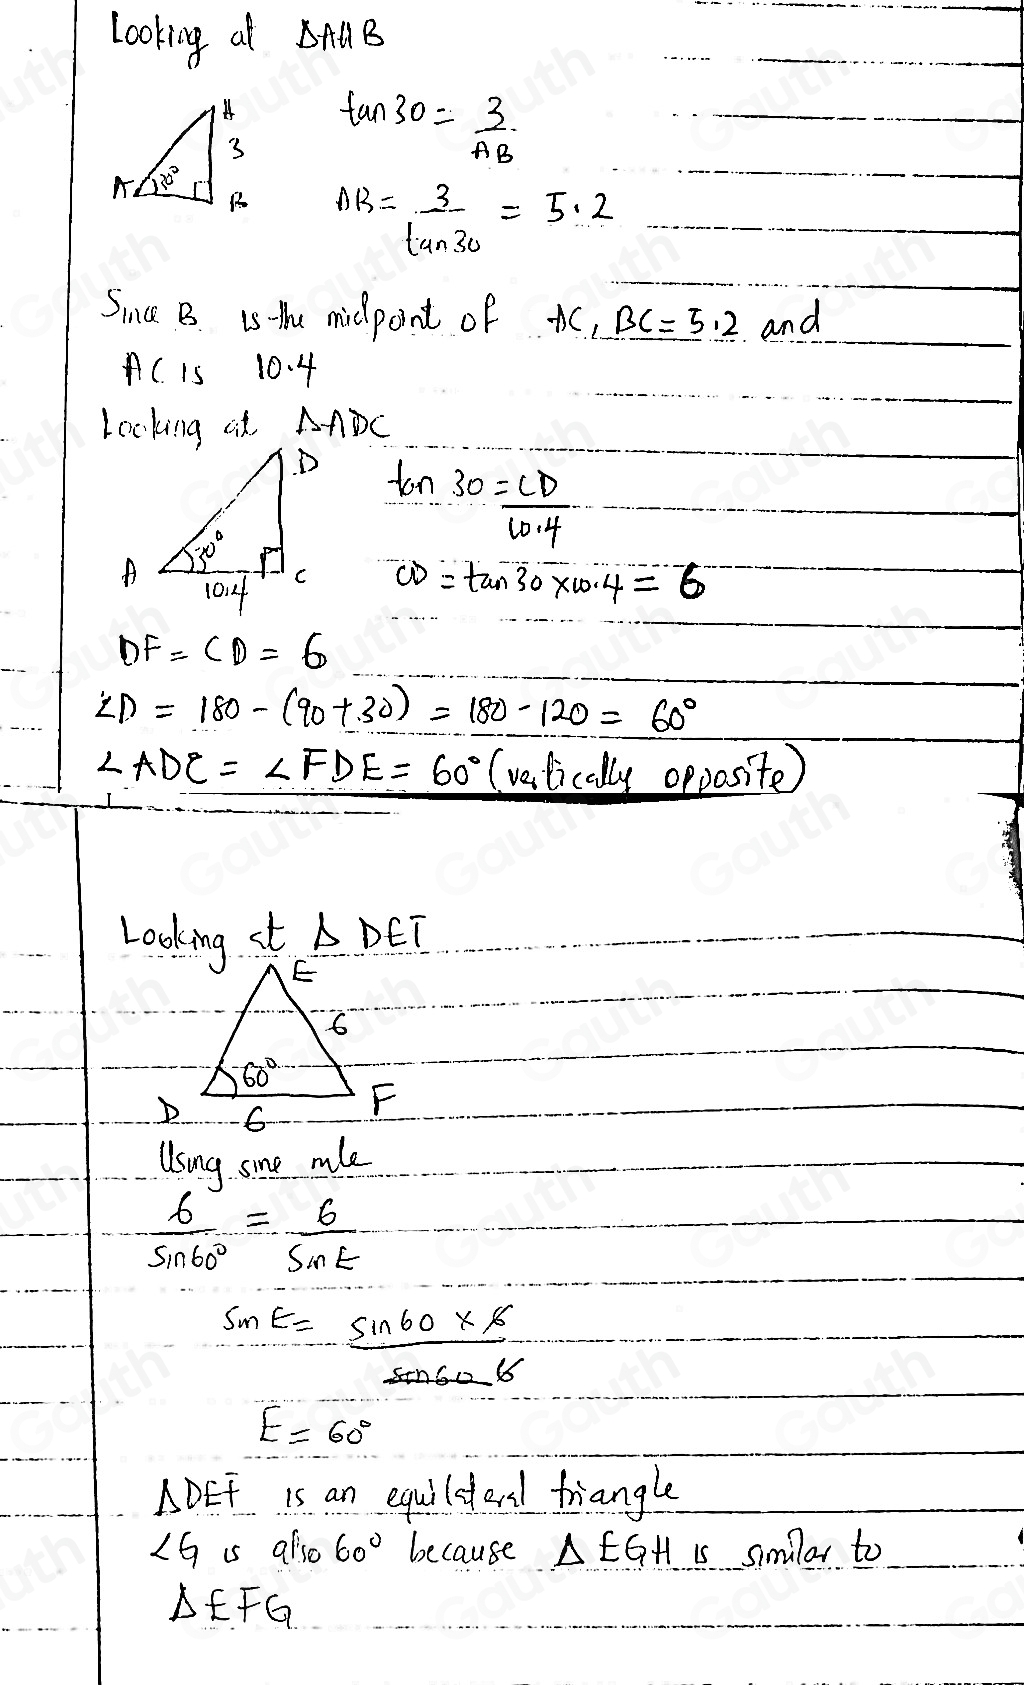 Looking at ΔAHB
H
tan30 = 3/AB
3
A 30° B
AB = 3/tan30 = 5.2
Since B is the midpoint of AC, BC = 5.2 and
AC is 10.4
Looking at ΔADC
D
tan 30 = CD/10.4
30°
A 10.4 C
CD = tan30 × 10.4 = 6
DF = CD = 6
∠D = 180 - (90+30) = 180 - 120 = 60°
∠ADC = ∠FDE = 60° (vertically opposite)
Looking at Δ DEF
E
6
60°
D 6 F
Using sine rule
6/sin60° = 6/Sin E
Sin E = sin60 × 6/6
E = 60°
ΔDEF is an equilateral triangle
∠G is also 60° because Δ EGH is similar to
ΔEFG